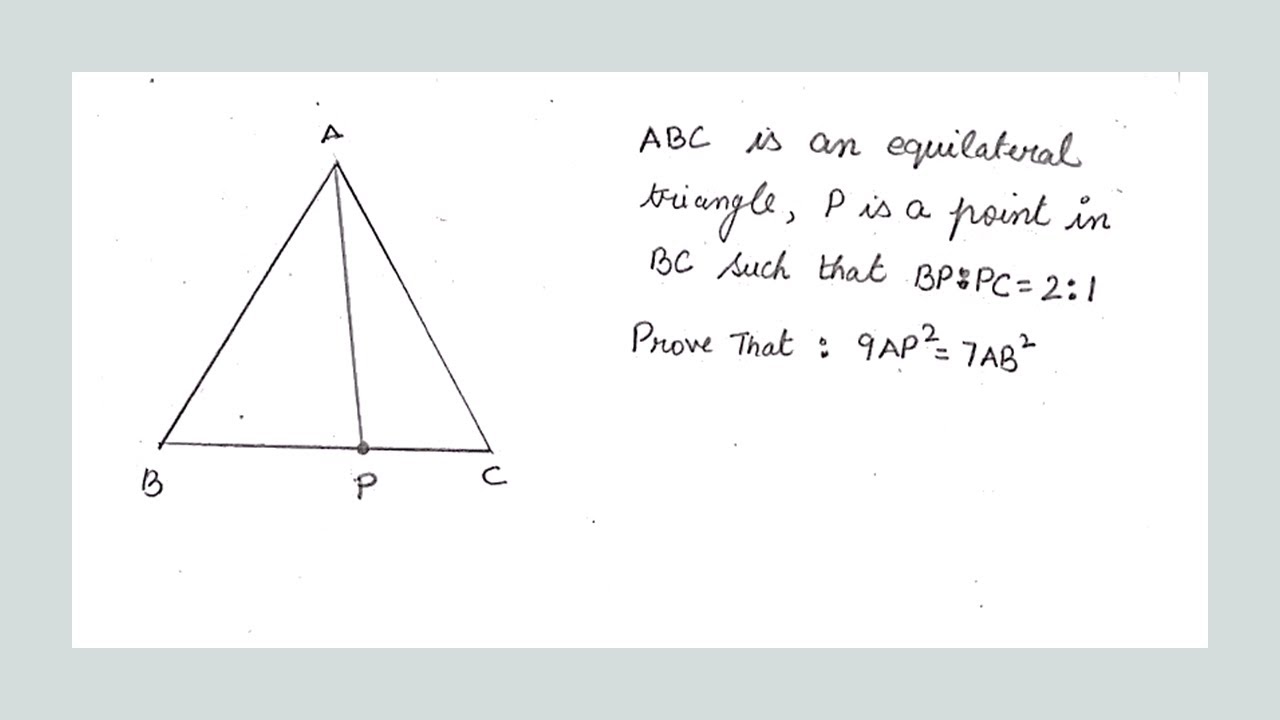 A
B
P
C
ABC is an equilateral
triangle, P is a point in
BC such that BP:PC=2:1
Prove That : 9AP²=7AB²